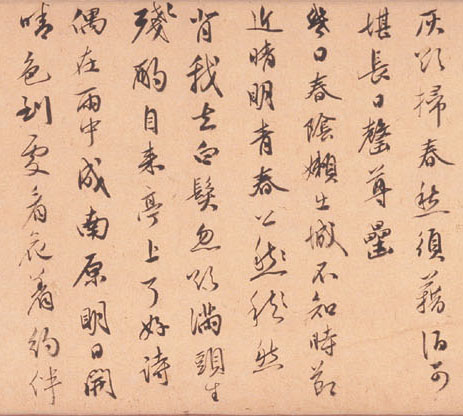 灰欲掃春愁須藉酒可
堪長日罄尊罍
幾日春陰嬾出城不知時節
近晴明青春公然然
背我去白髮忽欲滿頭生
殘酌自來亭上了好詩
偶在雨中成南原明日開
晴色到處看花着約伴